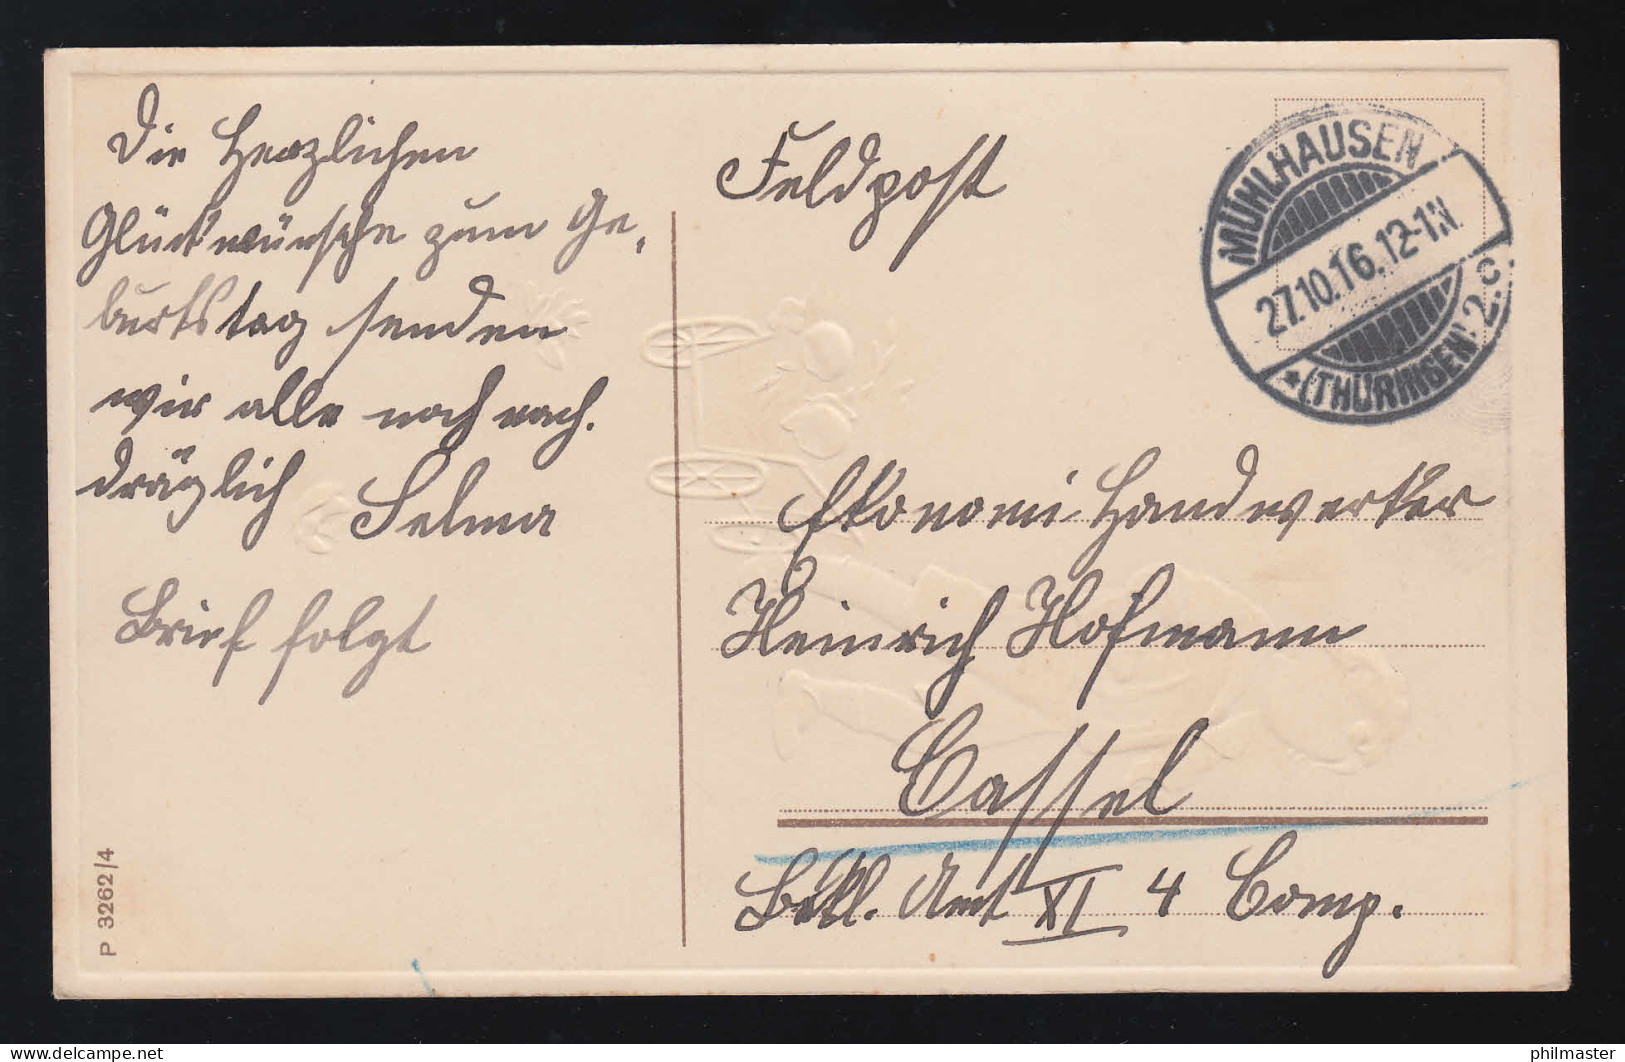 Die Herzlichen
Glückwünsche zum Ge-
burtstag senden
wir alle noch nach.
dräglich
Selma
Brief folgt
P 3262/4
Feldpost
MÜHLHAUSEN
27.10.16.12-1N.
* (THÜRINGEN) 2 c.
Ekonomi Handwerker
Heinrich Hofmann
Cassel
Bekl. Amt XI 4 Comp.
delcampe.net
philmaster